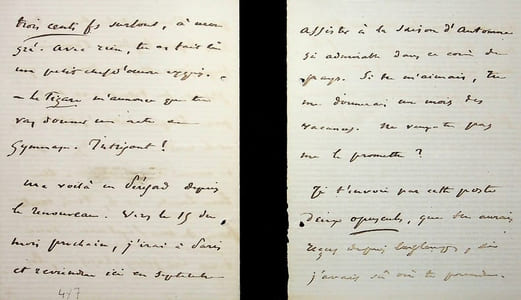 trois cents fs surtout, à mon
gré. Avec rien, tu as fait là
un petit chef d'œuvre exquis. -
- Le Figaro m'annonce que tu
vas donner un acte au
Gymnase. Intrigant !
Me voilà en Périgord depuis
le renouveau. Vers le 15 du
mois prochain, j'irai à Paris
et reviendrai ici en septembre
417
assister à la saison d'Automne
si admirable dans ce coin de
pays. Si tu m'aimais, tu
me donnerais un mois des
vacances. Ne veux-tu pas
me le promettre ?
Je t'envoie par cette poste
deux opuscules, que tu aurais
reçus depuis longtemps, si
j'avais sû où te prendre.